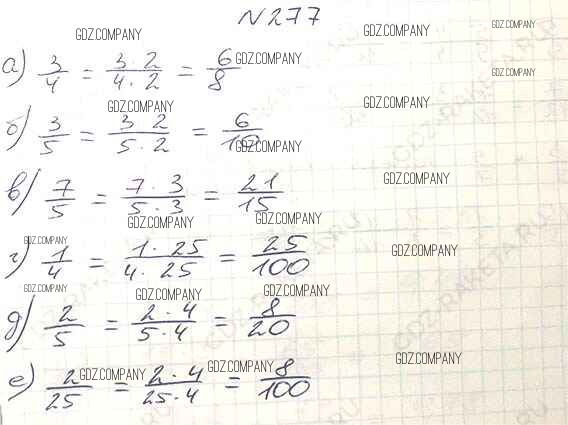 N 277
GDZ.COMPANY GDZ.COMPANY GDZ.COMPANY
а) 3/4 = 3 2/4 · 2 = 6/8 GDZ.COMPANY GDZ.COMPANY
GDZ.COMPANY GDZ.COMPANY
б) 3/5 = 3 2/5 · 2 = 6/10 GDZ.COMPANY
в) 7/5 = 7 · 3/5 · 3 = 21/15 GDZ.COMPANY
GDZ.COMPANY GDZ.COMPANY
GDZ.COMPANY
г) 1/4 = 1 · 25/4 · 25 = 25/100 GDZ.COMPANY
GDZ.COMPANY GDZ.COMPANY GDZ.COMPANY
д) 2/5 = 2 · 4/5 · 4 = 8/20
GDZ.COMPANY
е) 2/25 = 2 · 4/25 · 4 = 8/100 GDZ.COMPANY GDZ.COMPANY